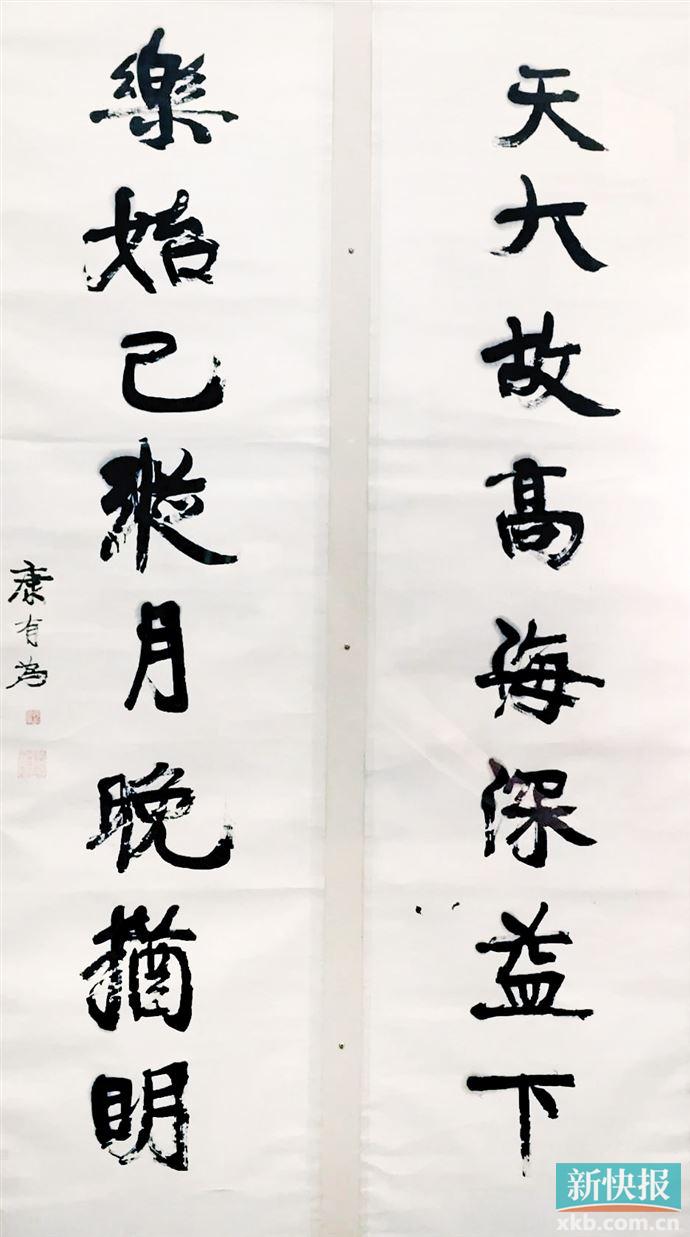 天大故高海深益下
樂始已月晚猶明
康有為
新快报
xkb.com.cn